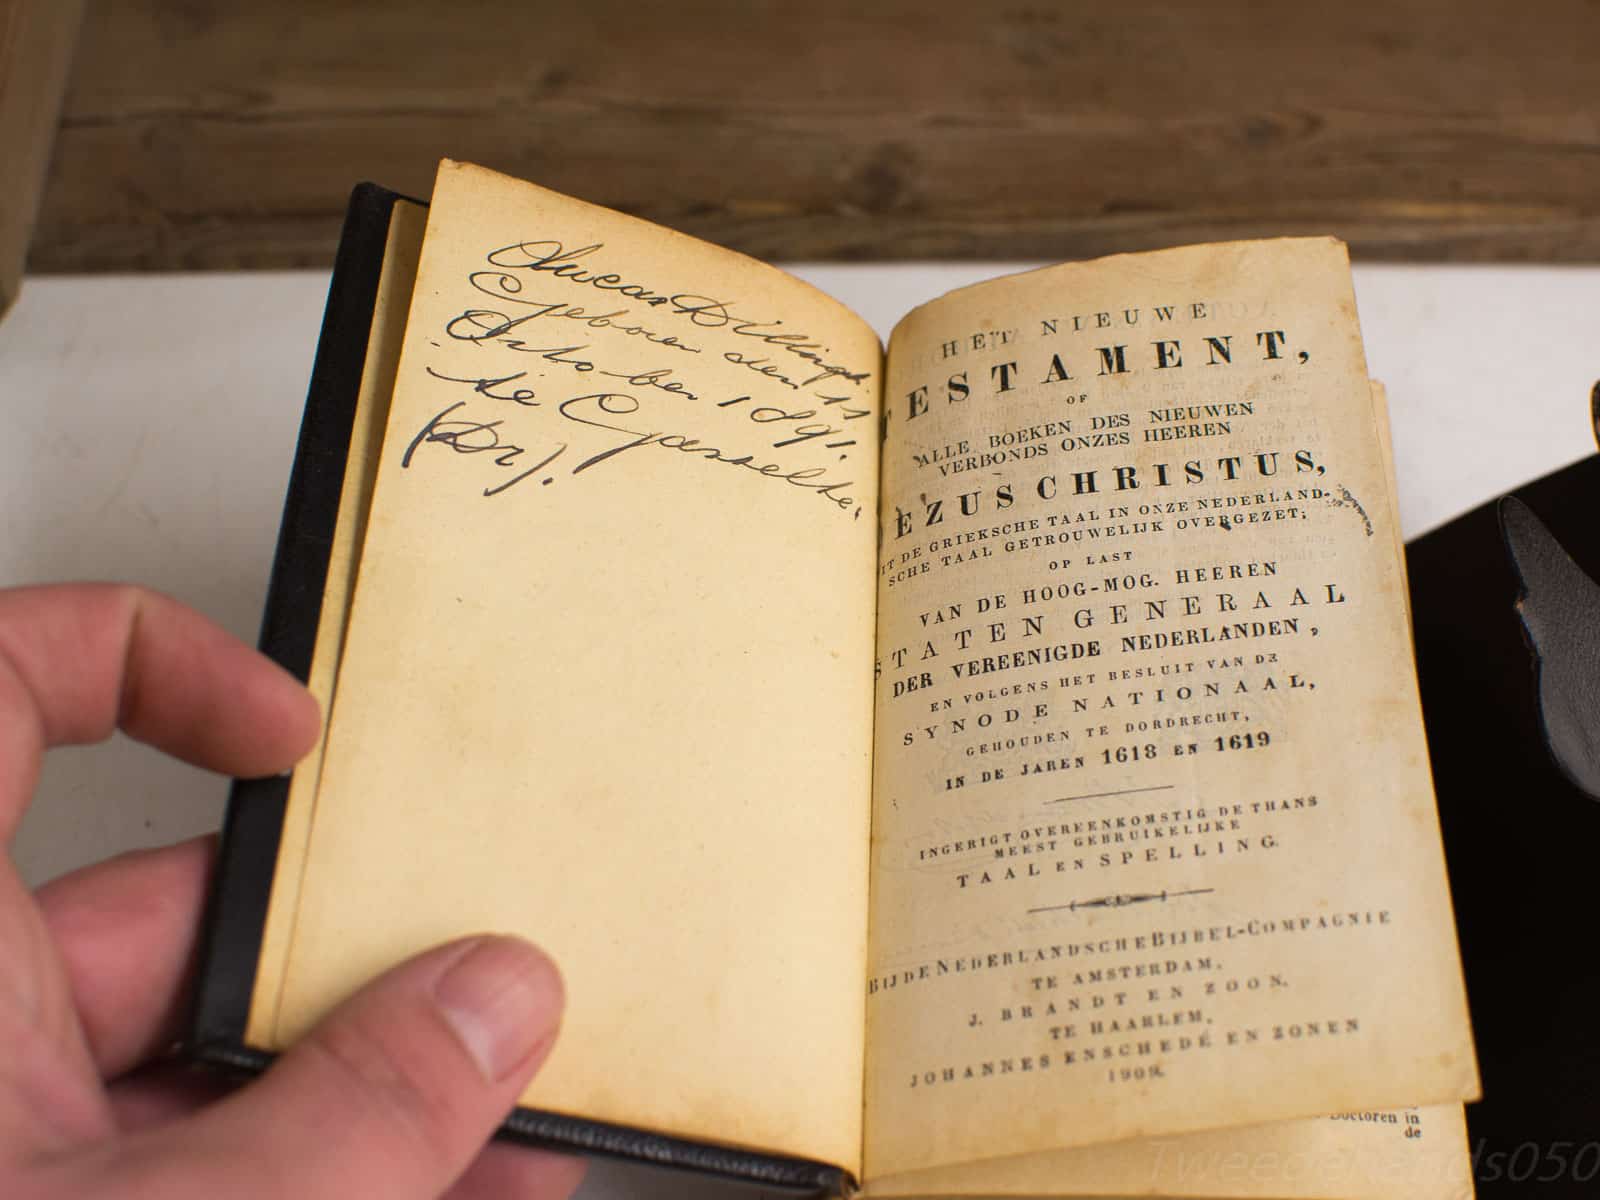 Geboren den 11
October 1891.
te Gasselte.
(Dr).
HET NIEUWE
TESTAMENT,
OF
ALLE BOEKEN DES NIEUWEN
VERBONDS ONZES HEEREN
JEZUS CHRISTUS,
UIT DE GRIEKSCHE TAAL IN ONZE NEDERLAND-
SCHE TAAL GETROUWELIJK OVERGEZET;
OP LAST
VAN DE HOOG-MOG. HEEREN
STATEN GENERAAL
DER VEREENIGDE NEDERLANDEN,
EN VOLGENS HET BESLUIT VAN DE
SYNODE NATIONAAL,
GEHOUDEN TE DORDRECHT,
IN DE JAREN 1618 EN 1619
INGERIGT OVEREENKOMSTIG DE THANS
MEEST GEBRUIKELIJKE
TAAL EN SPELLING.
BIJ DE NEDERLANDSCHE BIJBEL-COMPAGNIE
TE AMSTERDAM,
J. BRANDT EN ZOON,
TE HAARLEM,
JOHANNES ENSCHEDÉ EN ZONEN
1909.
Doctoren in
de
Tweedehands050